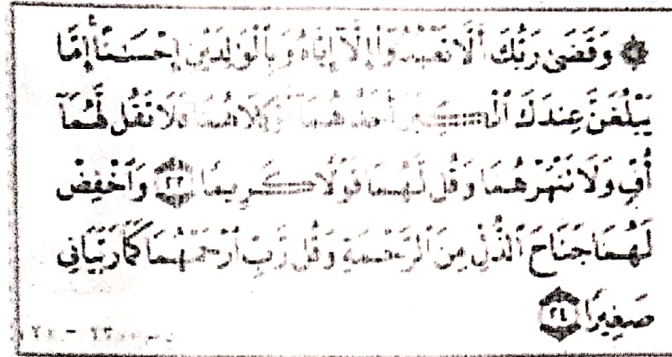 ۞ وَقَضَىٰ رَبُّكَ أَلَّا تَعْبُدُوٓا۟ إِلَّآ إِيَّاهُ وَبِٱلْوَٰلِدَيْنِ إِحْسَٰنًا إِمَّا
يَبْلُغَنَّ عِندَكَ ٱلْكِبَرَ أَحَدُهُمَآ أَوْ كِلَاهُمَا فَلَا تَقُل لَّهُمَآ
أُفٍّ وَلَا تَنْهَرْهُمَا وَقُل لَّهُمَا قَوْلًا كَرِيمًا ٢٣ وَٱخْفِضْ
لَهُمَا جَنَاحَ ٱلذُّلِّ مِنَ ٱلرَّحْمَةِ وَقُل رَّبِّ ٱرْحَمْهُمَا كَمَا رَبَّيَانِى
صَغِيرًا ٢٤